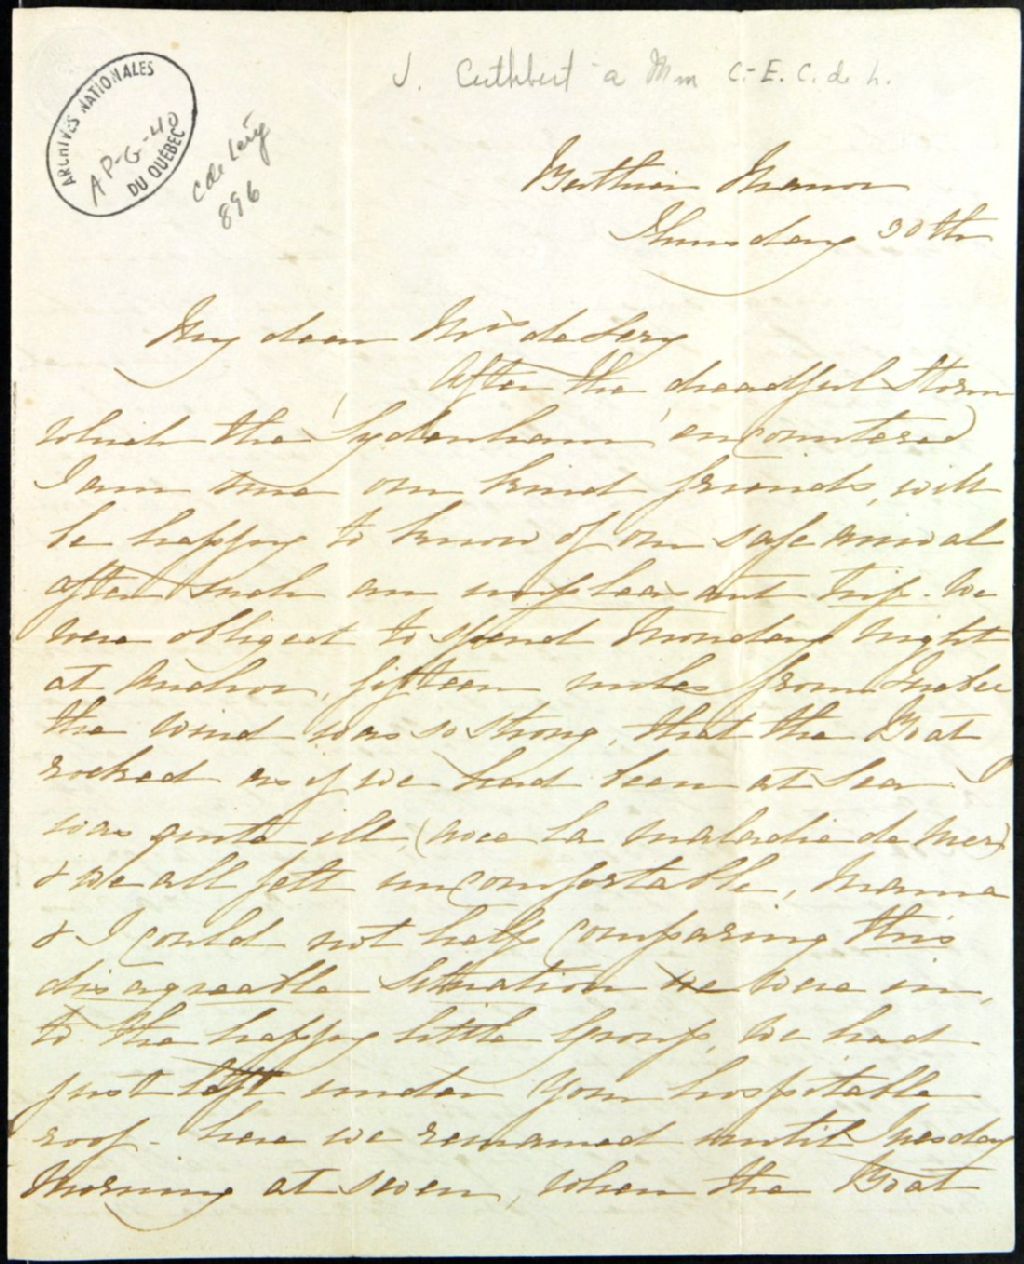 J. Cuthbert à Mm C.-E. C. de L.
ARCHIVES NATIONALES
AP-G-40
DU QUÉBEC
C de Léry
896
Berthier Manor
Thursday 30th
My dear Mrs de Lery
After the dreadful Storm
which the 'Sydenham' encountered
I am sure our kind friends, will
be happy to know of our safe arrival
after such an unpleasant trip. We
were obliged to spend Monday Night
at Anchor, fifteen miles from Quebec
the wind was so strong, that the Boat
rocked as if we had been at Sea I
was quite ill, (voce la maladie de Mer)
& we all felt uncomfortable, Mama
& I could not help comparing this
disagreeable Situation we were in,
to the happy little Group, we had
just left under your hospitable
roof - here we remained until Tuesday
Morning at seven, when the Boat